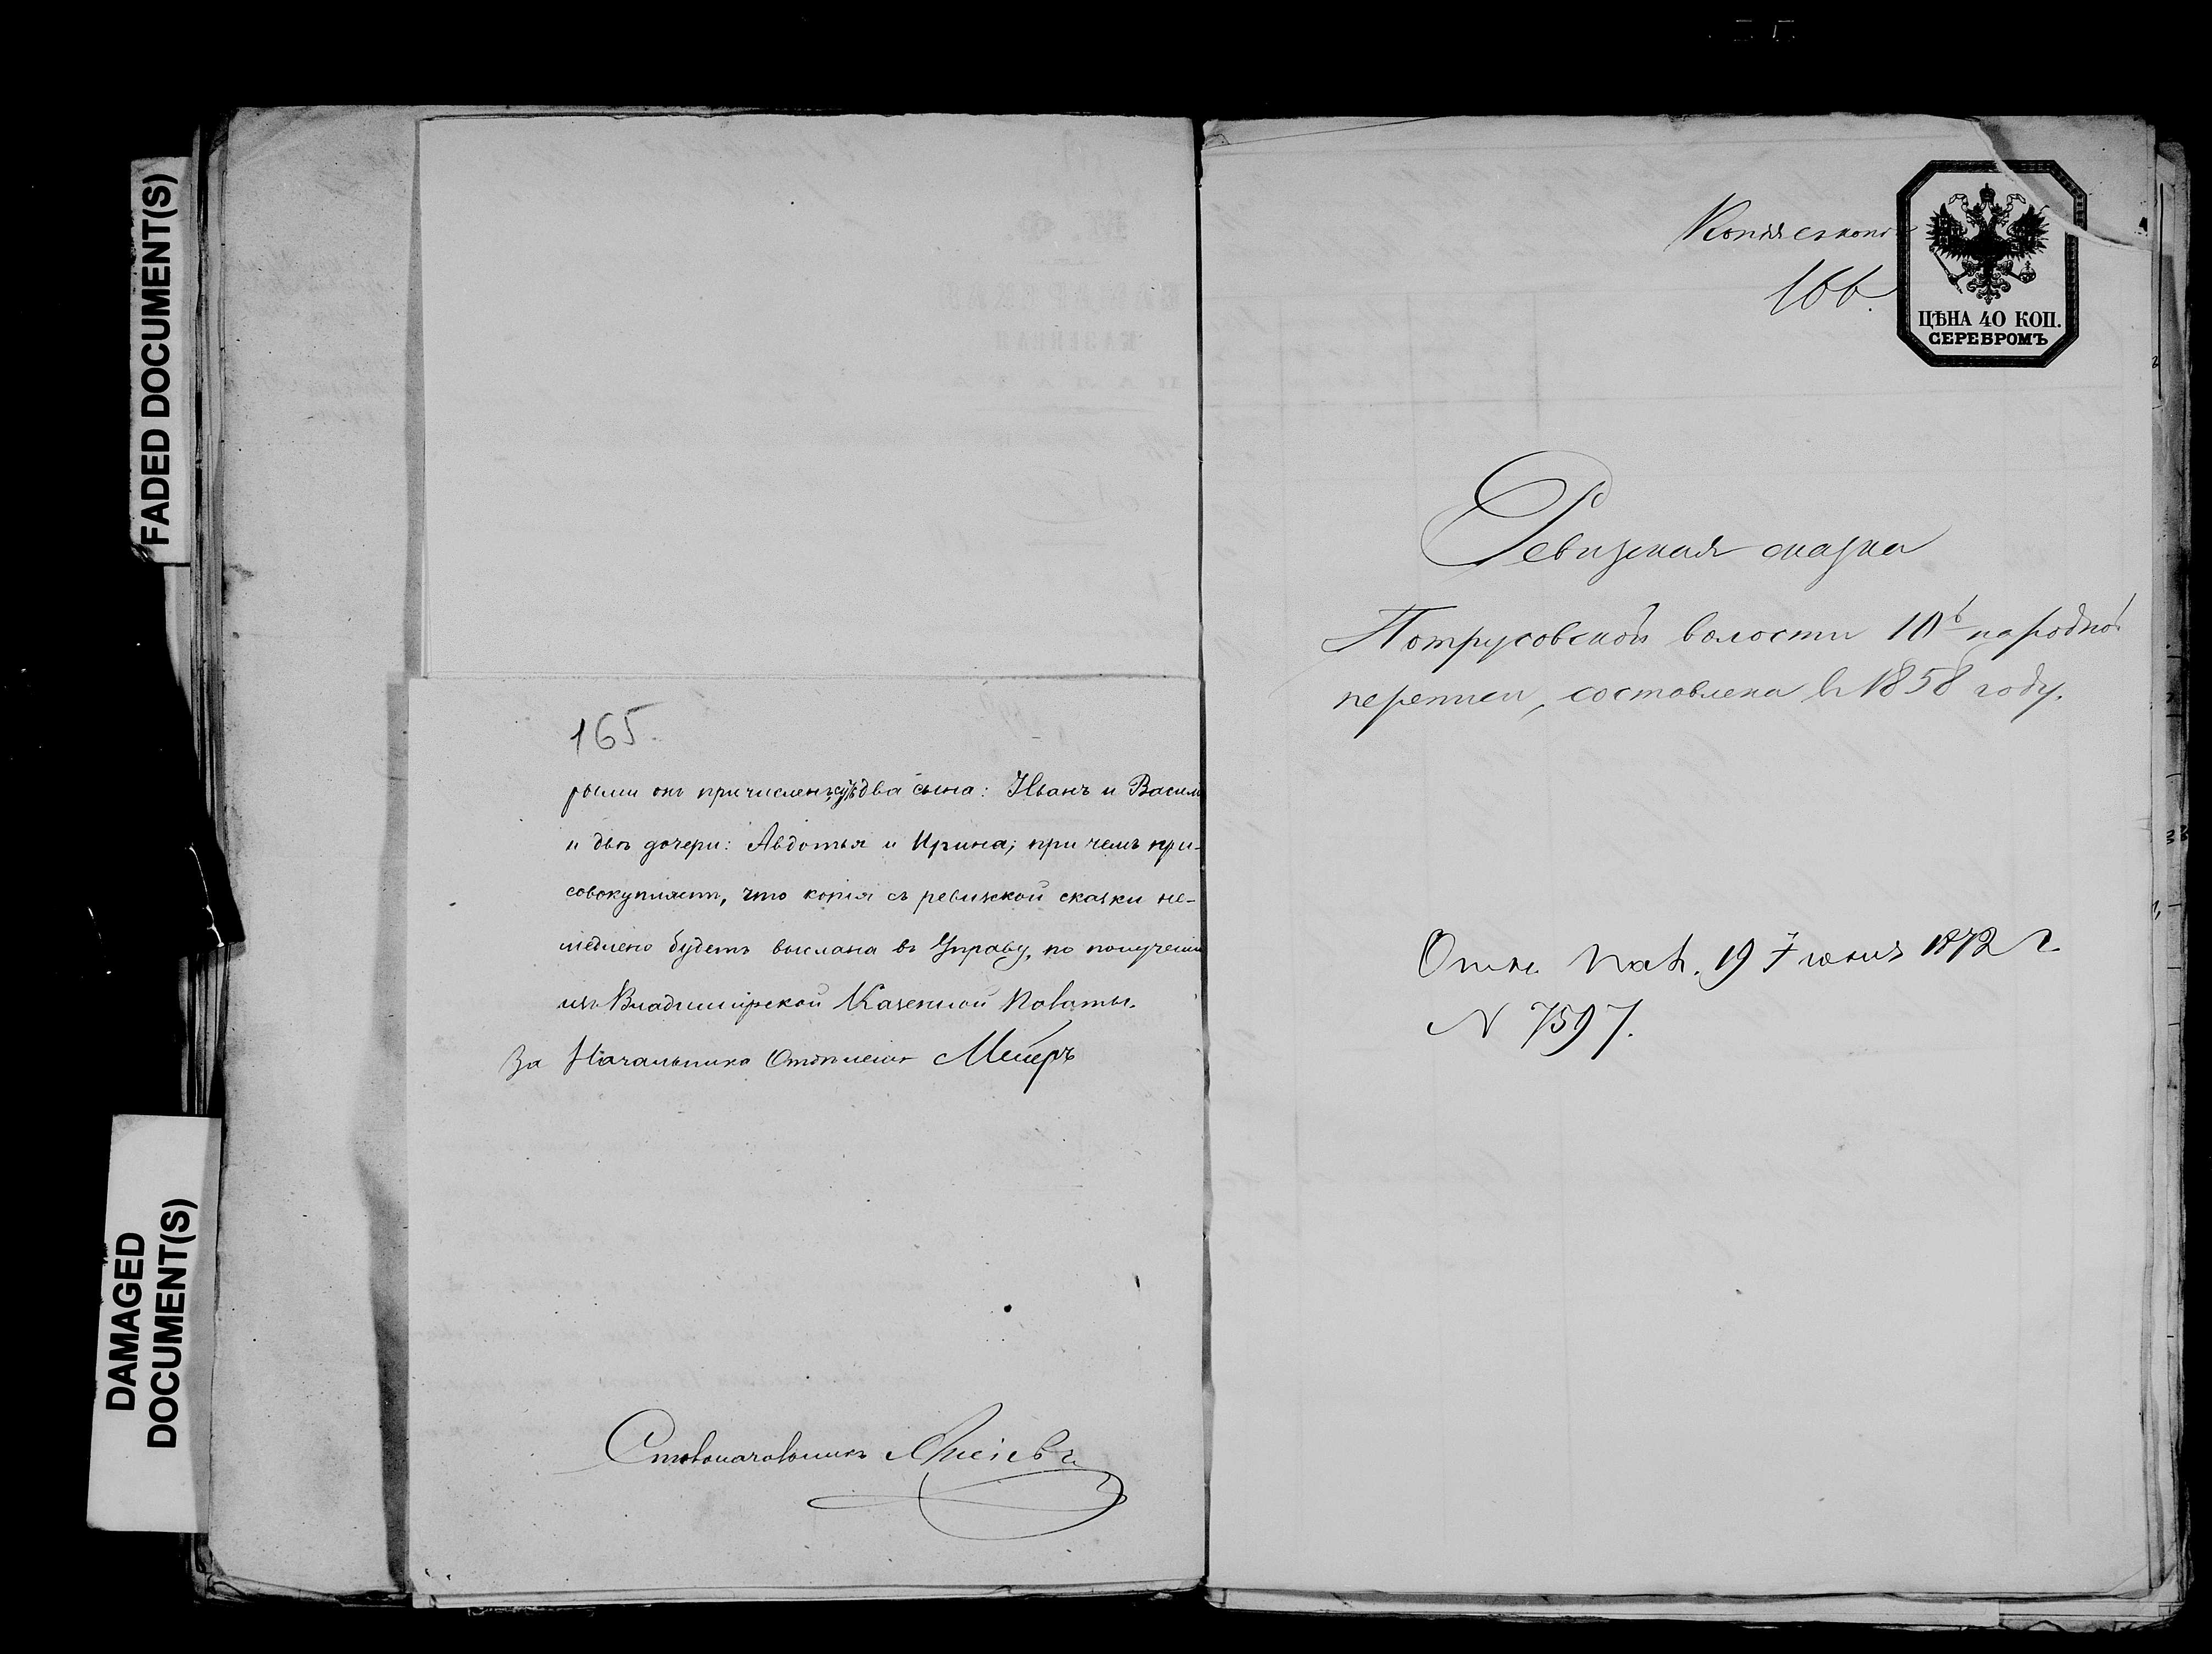 FADED DOCUMENT(S)
DAMAGED
DOCUMENT(S)
165
рыми онъ причисленъ, два сына: Иванъ и Васил
и двѣ дочери: Авдотья и Ирина; при чемъ при-
совокупляетъ, что копія съ ревизской сказки не-
медлено будетъ выслана въ Управу, по полученіи
изъ Владимірской Казенной Палаты.
За Начальника Отдѣленія Мейеръ
Столоначальникъ
Копія съ копі
166.
ЦѢНА 40 КОП.
СЕРЕБРОМЪ
Ревизская сказка
Потрусовской волости 10й народной
переписи, составлена въ 1858 году.
19 Іюня 1872 г.
N 7597.